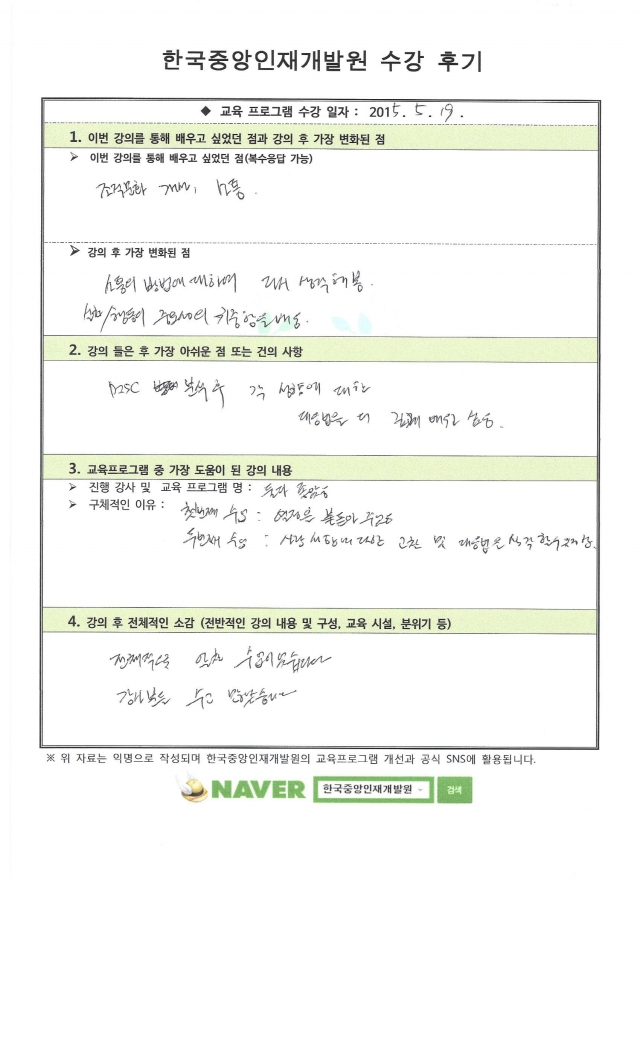 한국중앙인재개발원 수강 후기
◆ 교육 프로그램 수강 일자 : 2015. 5. 19.
1. 이번 강의를 통해 배우고 싶었던 점과 강의 후 가장 변화된 점
➢ 이번 강의를 통해 배우고 싶었던 점(복수응답 가능)
조직문화 개선, 소통.
➢ 강의 후 가장 변화된 점
소통의 방법에 대하여 다시 생각해봄.
실천/행동이 중요성의 을 배움.
2. 강의 들은 후 가장 아쉬운 점 또는 건의 사항
DISC 분석 후 각 성향에 대한
대응법을 더 길게 배우고 싶음.
3. 교육프로그램 중 가장 도움이 된 강의 내용
➢ 진행 강사 및 교육 프로그램 명 : 둘다 좋았음
➢ 구체적인 이유 : 첫번째 수업 : 열정을 불돋아 주고
두번째 수업 : 사람 대한 고찰 및 대응법을 생각할수
4. 강의 후 전체적인 소감 (전반적인 강의 내용 및 구성, 교육 시설, 분위기 등)
전체적으로 알찬 수업이었습니다
강사분들 수고 많으셨습니다
※ 위 자료는 익명으로 작성되며 한국중앙인재개발원의 교육프로그램 개선과 공식 SNS에 활용됩니다.
NAVER 한국중앙인재개발원 검색